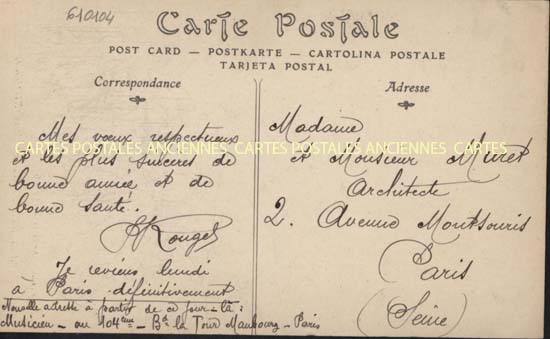 610104
Carte Postale
POST CARD — POSTKARTE — CARTOLINA POSTALE
TARJETA POSTAL
Correspondance
Mes vœux respectueux
et les plus sincères de
bonne année et de
bonne santé.
Rouget
Je reviens lundi
à Paris définitivement
Nouvelle adresse à partir de ce jour-là :
Musicien - au 104ème - Bd la Tour Maubourg - Paris
Adresse
Madame
et Monsieur Muret
Architecte
2. Avenue Montsouris
Paris
(Seine)
CARTES POSTALES ANCIENNES CARTES POSTALES ANCIENNES